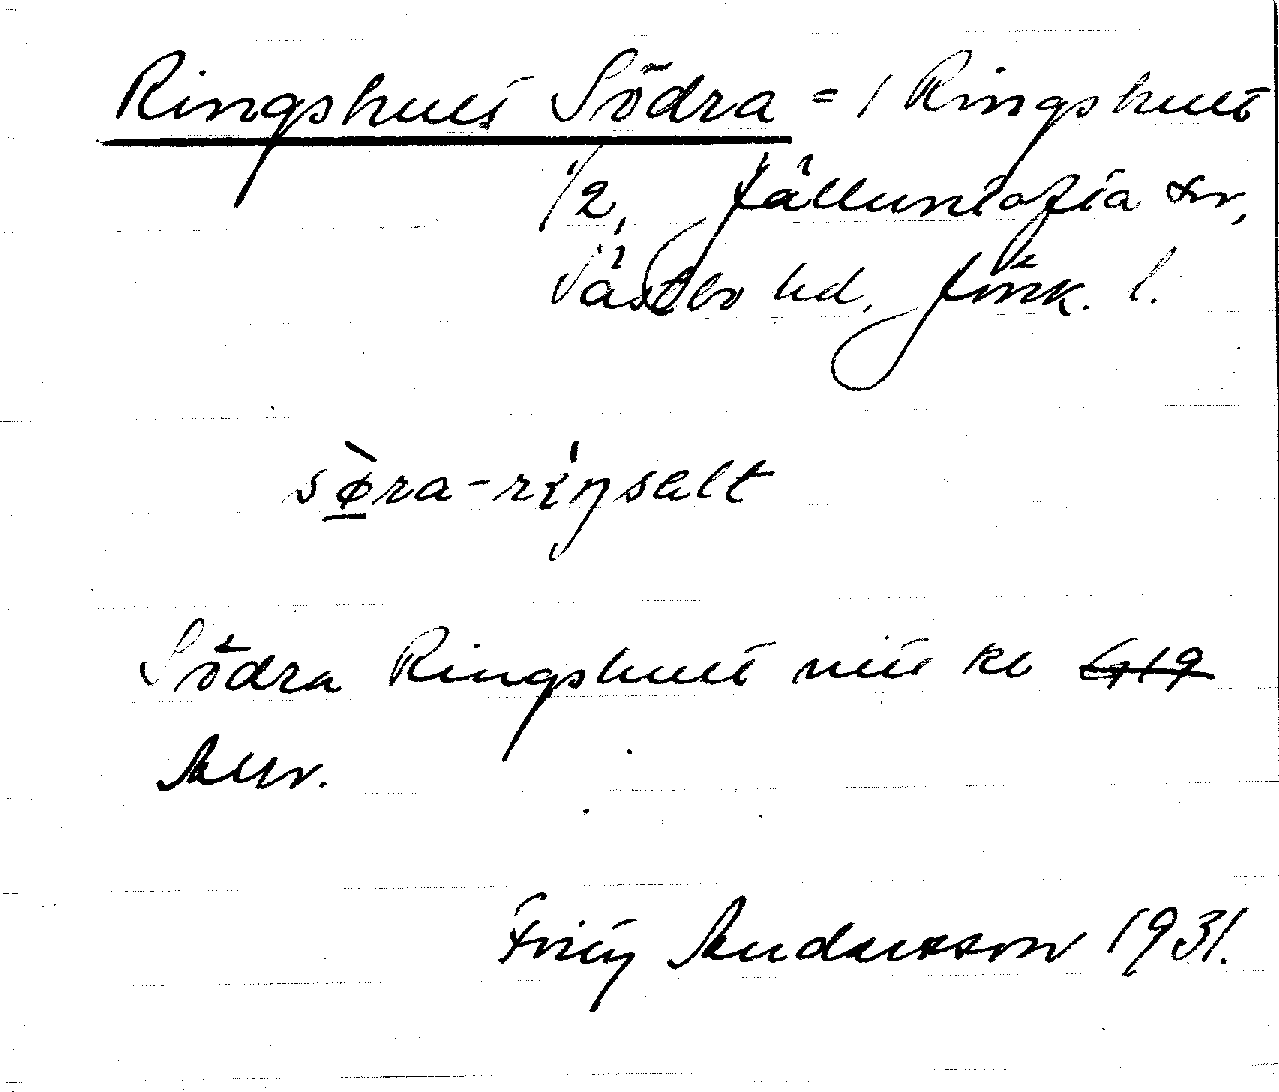 Ringshult Södra = 1 Ringshult
1/2, Jälluntofta sn,
Västbo hd, Jönk. l.
sø̀ra-ríŋsɐlt
Södra Ringshult
Fritz Andersson 1931.